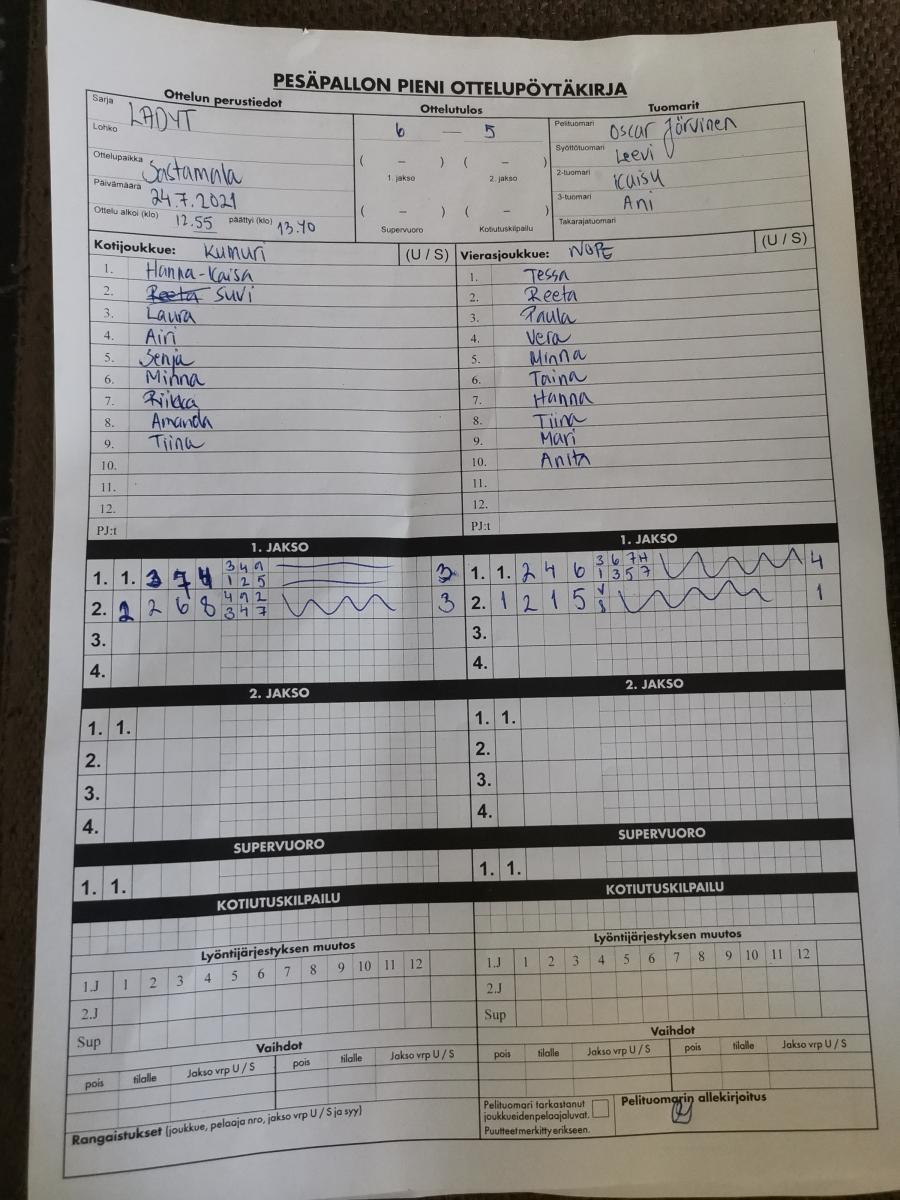 PESÄPALLON PIENI OTTELUPÖYTÄKIRJA
Ottelun perustiedot
Ottelutulos
Tuomarit
Sarja LADYT
Lohko
Ottelupaikka Sastamala
Päivämäärä 24.7.2021
Ottelu alkoi (klo) 12.55 päättyi (klo) 13.40
6 — 5
( – ) ( – )
1. jakso 2. jakso
( – ) ( – )
Supervuoro Kotiutuskilpailu
Pelituomari Oscar Järvinen
Syöttötuomari Leevi
2-tuomari Kaisu
3-tuomari Ani
Takarajatuomari
Kotijoukkue: Kumuri (U / S)
1. Hanna-Kaisa
2. Reeta Suvi
3. Laura
4. Airi
5. Senja
6. Minna
7. Riikka
8. Amanda
9. Tiina
10.
11.
12.
PJ:t
Vierasjoukkue: NOPE (U / S)
1. Tessa
2. Reeta
3. Paula
4. Vera
5. Minna
6. Taina
7. Hanna
8. Tiina
9. Mari
10. Anita
11.
12.
PJ:t
1. JAKSO
1. 1. 3 7 4 3 4 9 3
1 2 5
2. 2 2 6 8 4 9 2 3
3 4 7
3.
4.
1. JAKSO
1. 1. 2 4 6 3 6 7 4
1 3 5 7
2. 1 2 1 5 1
3.
4.
2. JAKSO
1. 1.
2.
3.
4.
2. JAKSO
1. 1.
2.
3.
4.
SUPERVUORO
1. 1.
SUPERVUORO
1. 1.
KOTIUTUSKILPAILU
KOTIUTUSKILPAILU
Lyöntijärjestyksen muutos
1.J 1 2 3 4 5 6 7 8 9 10 11 12
2.J
Sup
Lyöntijärjestyksen muutos
1.J 1 2 3 4 5 6 7 8 9 10 11 12
2.J
Sup
Vaihdot
pois tilalle Jakso vrp U / S pois tilalle Jakso vrp U / S
Vaihdot
pois tilalle Jakso vrp U / S pois tilalle Jakso vrp U / S
Rangaistukset (joukkue, pelaaja nro, jakso vrp U / S ja syy)
Pelituomari tarkastanut
joukkueiden pelaajaluvat.
Puutteet merkitty erikseen.
Pelituomarin allekirjoitus